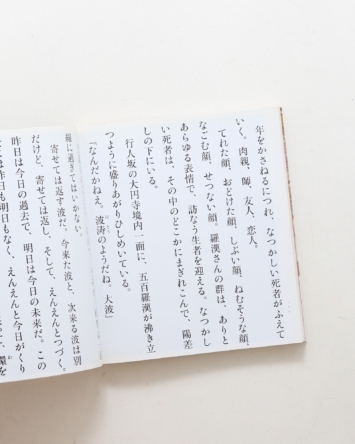 年をかさねるにつれ、なつかしい死者がふえて
いく。肉親、師、友人、恋人。
てれた顔、おどけた顔、しぶい顔、ねむそうな顔、
なごむ顔、せつない顔。羅漢さんの群は、ありと
あらゆる表情で、訪なう生者を迎える。なつかし
い死者は、その中のどこかにまぎれこんで、陽差
しの下にいる。
行人坂の大円寺境内一面に、五百羅漢が沸き立
つように盛りあがりひしめいている。
「なんだかねえ。波涛のようだね。大波」
線に過ぎてはいかない。
寄せては返す波だ。今来た波と、次来る波は別
だけど、寄せては返し、そして、えんえんとつづく。
昨日は今日の過去で、明日は今日の未来だ。この
昨日も明日もなく、えんえんと今日がくり